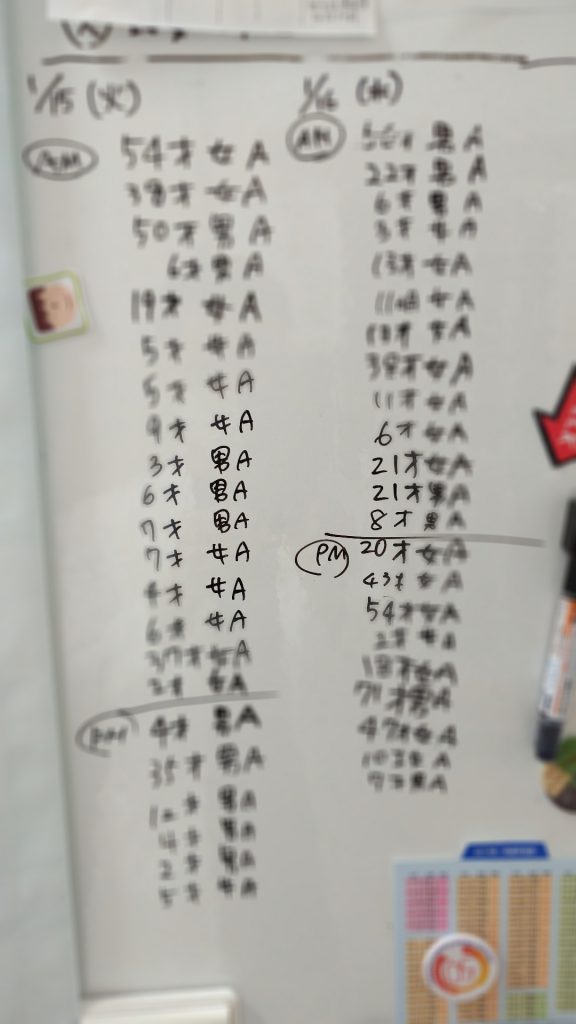 1/15 (火)
AM
54才 女 A
38才 女 A
50才 男 A
6才 男 A
19才 女 A
5才 女 A
5才 女 A
9才 女 A
3才 男 A
6才 男 A
7才 男 A
7才 女 A
4才 女 A
6才 女 A
37才 女 A
2才 女 A
PM
4才 男 A
35才 男 A
男 A
4才 男 A
2才 男 A
5才 女 A
1/16 (水)
AM
男 A
22才 男 A
6才 男 A
3才 女 A
13才 女 A
女 A
女 A
38才 女 A
11才 女 A
6才 女 A
21才 女 A
21才 男 A
8才 男 A
PM
20才 女 A
43才 女 A
54才 女 A
2才 女 A
18才 女 A
71才 男 A
47才 女 A
女 A
男 A